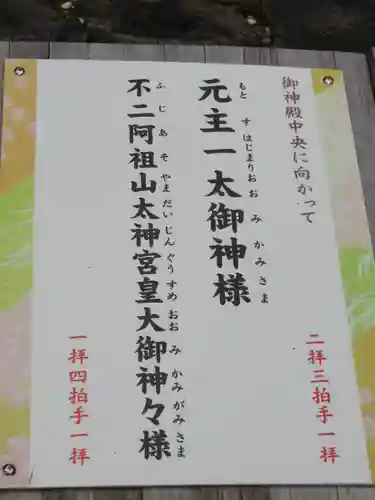 御神殿中央に向かって
元主一太御神様
もと す はじまり おお み かみ さま
二拝三拍手一拝
不二阿祖山太神宮皇大御神々様
ふ じ あ そ やま だい じん ぐう すめ おお み かみ がみ さま
一拝四拍手一拝